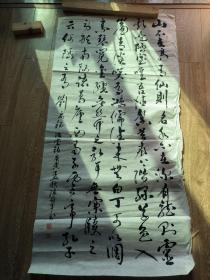 山不在高有仙則名水不在深有龍則靈
斯是陋室惟吾德馨苔痕上階綠草色入
簾青談笑有鴻儒往來無白丁可以調
素琴閱金經無絲竹之亂耳無案牘之
勞形南陽諸葛廬西蜀子雲亭孔子
云何陋之有劉禹錫陋室銘